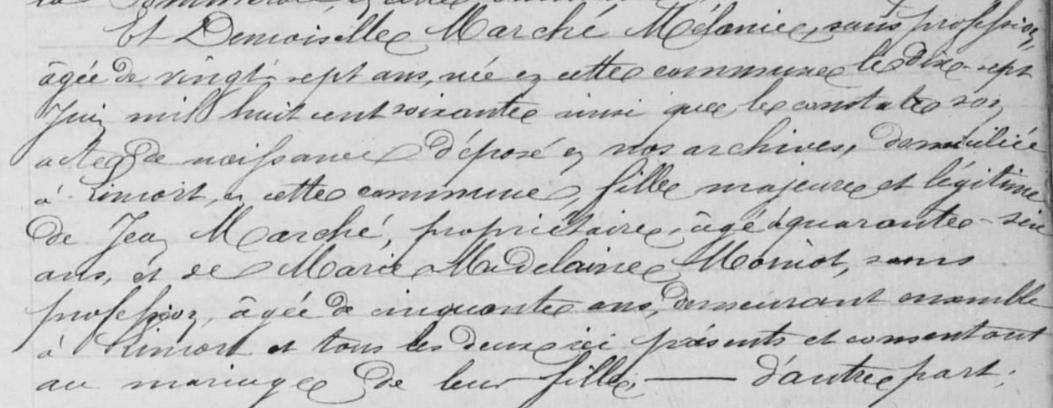 Et Demoiselle Marché Mélanie, sans profession,
âgée de vingt-sept ans, née en cette commune le dix-sept
Juin mil huit cent soixante ainsi que le constate son
acte de naissance déposé en nos archives, domiciliée
à Limort, en cette commune, fille majeure et légitime
de Jean Marché, propriétaire, âgé de quarante-six
ans, et de Marie Madelaine Moinot, sans
profession, âgée de cinquante ans, demeurant ensemble
à Limort et tous les deux ici présents et consentant
au mariage de leur fille, — d'autre part;